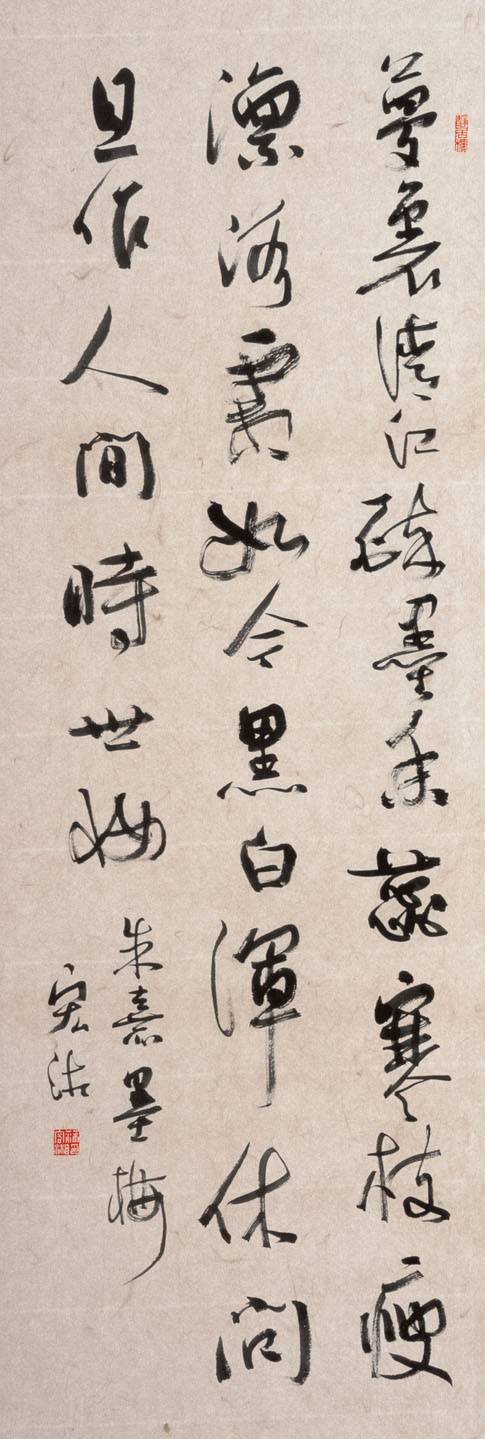 夢裏清江醉墨香蕊寒枝瘦
凜冰霜如今黑白渾休問
且作人間時世妝
朱熹墨梅